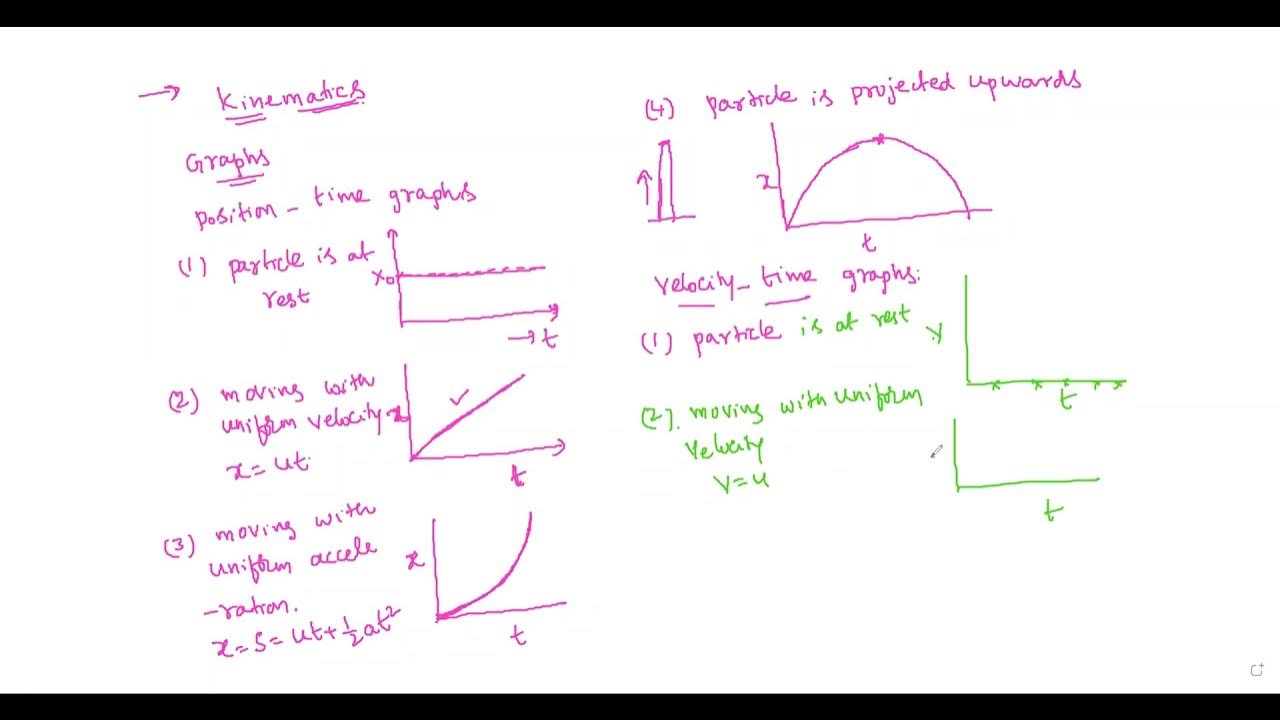 → Kinematics
Graphs
Position - time graphs
(1) particle is at
rest
x₀
→ t
(2) moving with
uniform velocity
x = ut
x
t
(3) moving with
uniform accele
-ration.
x = S = ut + ½at²
x
t
(4) particle is projected upwards
x
t
Velocity - time graphs:
(1) particle is at rest
v
t
(2). moving with uniform
velocity
v = u
t